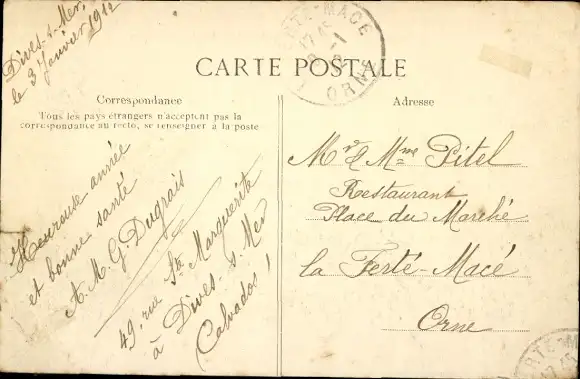 Dives-s-Mer,
le 3 Janvier 1912
FERTÉ-MACÉ
ORNE
CARTE POSTALE
Correspondance
Tous les pays étrangers n'acceptent pas la
correspondance au recto, se renseigner à la poste
Heureuse année
et bonne santé
A. M. G Dugrais
49, rue Ste Marguerite
à Dives-s-Mer
Calvados
Adresse
Mr & Mme Pitel
Restaurant
Place du Marché
la Ferté-Macé
Orne